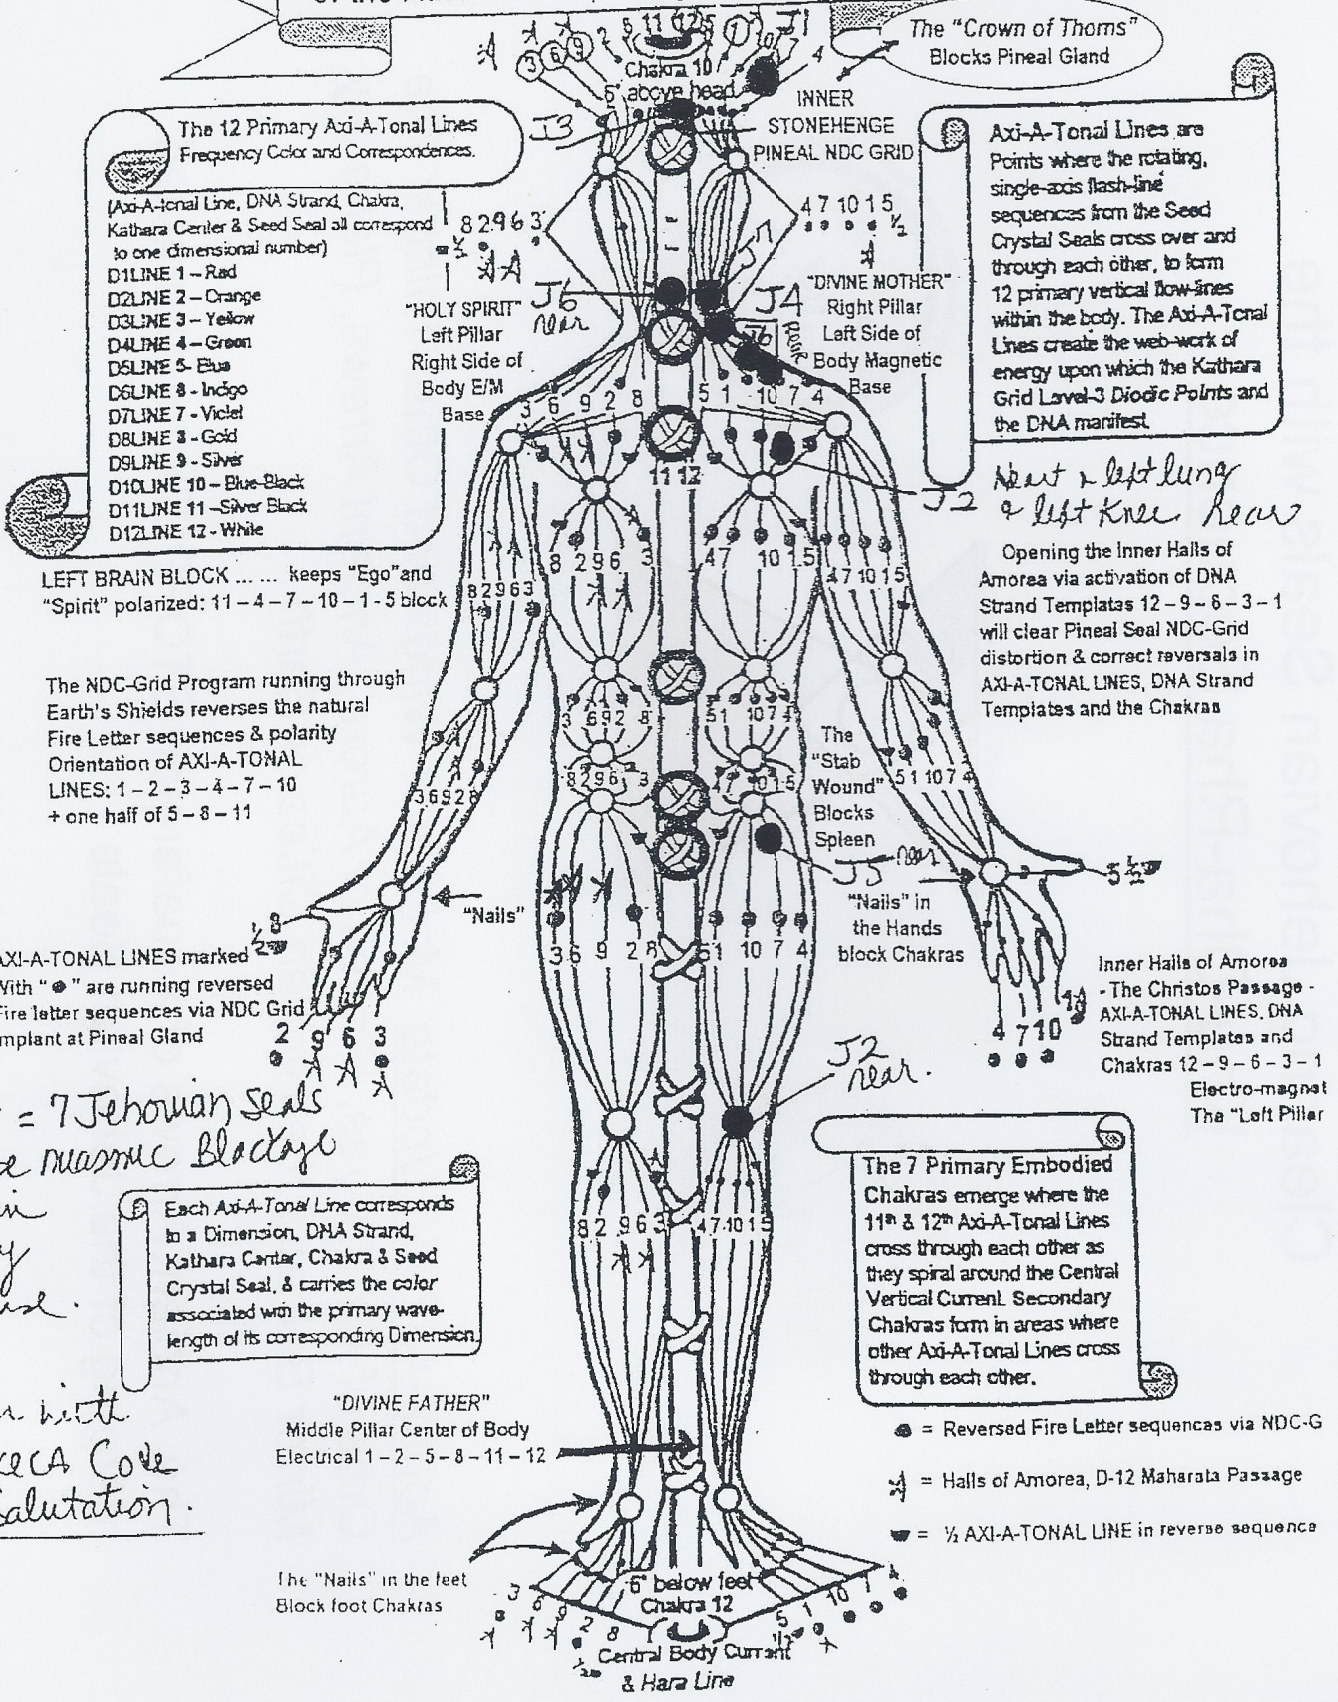 The "Crown of Thorns"
Blocks Pineal Gland
Chakra 10
6" above head
J1
J3
INNER
STONEHENGE
PINEAL NDC GRID
The 12 Primary Axi-A-Tonal Lines
Frequency Color and Correspondences.
(Axi-A-tonal Line, DNA Strand, Chakra,
Kathara Center & Seed Seal all correspond
to one dimensional number)
D1LINE 1 – Red
D2LINE 2 – Orange
D3LINE 3 – Yellow
D4LINE 4 – Green
D5LINE 5- Blue
D6LINE 6 - Indigo
D7LINE 7 - Violet
D8LINE 8 - Gold
D9LINE 9 - Silver
D10LINE 10 – Blue-Black
D11LINE 11 –Silver Black
D12LINE 12 - White
Axi-A-Tonal Lines are
Points where the rotating,
single-axis flash-line
sequences from the Seed
Crystal Seals cross over and
through each other, to form
12 primary vertical flow-lines
within the body. The Axi-A-Tonal
Lines create the web-work of
energy upon which the Kathara
Grid Level-3 Diodic Points and
the DNA manifest.
8 2 9 6 3
4 7 10 1 5 ½
J7
J6
rear
J4
"HOLY SPIRIT"
Left Pillar
Right Side of
Body E/M
Base
"DIVINE MOTHER"
Right Pillar
Left Side of
Body Magnetic
Base
3 6 9 2 8
5 1 10 7 4
11 12
J2
Heart & left lung
& left Knee rear
LEFT BRAIN BLOCK ... ... keeps "Ego"and
"Spirit" polarized: 11 – 4 – 7 – 10 – 1 - 5 block
8 2 9 6 3
4 7 10 1 5
8 2 9 6 3
4 7 10 1 5
Opening the Inner Halls of
Amorea via activation of DNA
Strand Templates 12 – 9 – 6 – 3 – 1
will clear Pineal Seal NDC-Grid
distortion & correct reversals in
AXI-A-TONAL LINES, DNA Strand
Templates and the Chakras
The NDC-Grid Program running through
Earth's Shields reverses the natural
Fire Letter sequences & polarity
Orientation of AXI-A-TONAL
LINES: 1 – 2 – 3 – 4 – 7 – 10
+ one half of 5 – 8 – 11
3 6 9 2 8
5 1 10 7 4
8 2 9 6 3
4 7 10 1 5
3 6 9 2 8
5 1 10 7 4
The
"Stab
Wound"
Blocks
Spleen
J5 rear
"Nails"
"Nails" in
the Hands
block Chakras
5 ½
½ 8
3 6 9 2 8
5 1 10 7 4
AXI-A-TONAL LINES marked
With " " are running reversed
Fire letter sequences via NDC Grid
mplant at Pineal Gland
2 9 6 3
4 7 10
Inner Halls of Amorea
- The Christos Passage -
AXI-A-TONAL LINES, DNA
Strand Templates and
Chakras 12 – 9 – 6 – 3 – 1
Electro-magnet
The "Left Pillar
J2
rear.
= 7 Jehovian Seals
miasmic Blockage
Each Axi-A-Tonal Line corresponds
to a Dimension, DNA Strand,
Kathara Center, Chakra & Seed
Crystal Seal, & carries the color
associated with the primary wave-
length of its corresponding Dimension.
8 2 9 6 3
4 7 10 1 5
The 7 Primary Embodied
Chakras emerge where the
11th & 12th Axi-A-Tonal Lines
cross through each other as
they spiral around the Central
Vertical Current. Secondary
Chakras form in areas where
other Axi-A-Tonal Lines cross
through each other.
"DIVINE FATHER"
Middle Pillar Center of Body
Electrical 1 – 2 – 5 – 8 – 11 – 12
Code
Salutation.
= Reversed Fire Letter sequences via NDC-G
= Halls of Amorea, D-12 Maharata Passage
= ½ AXI-A-TONAL LINE in reverse sequence
The "Nails" in the feet
Block foot Chakras
6" below feet
Chakra 12
3 6 9 2 8
5 1 10 7 4
Central Body Current
& Hara Line